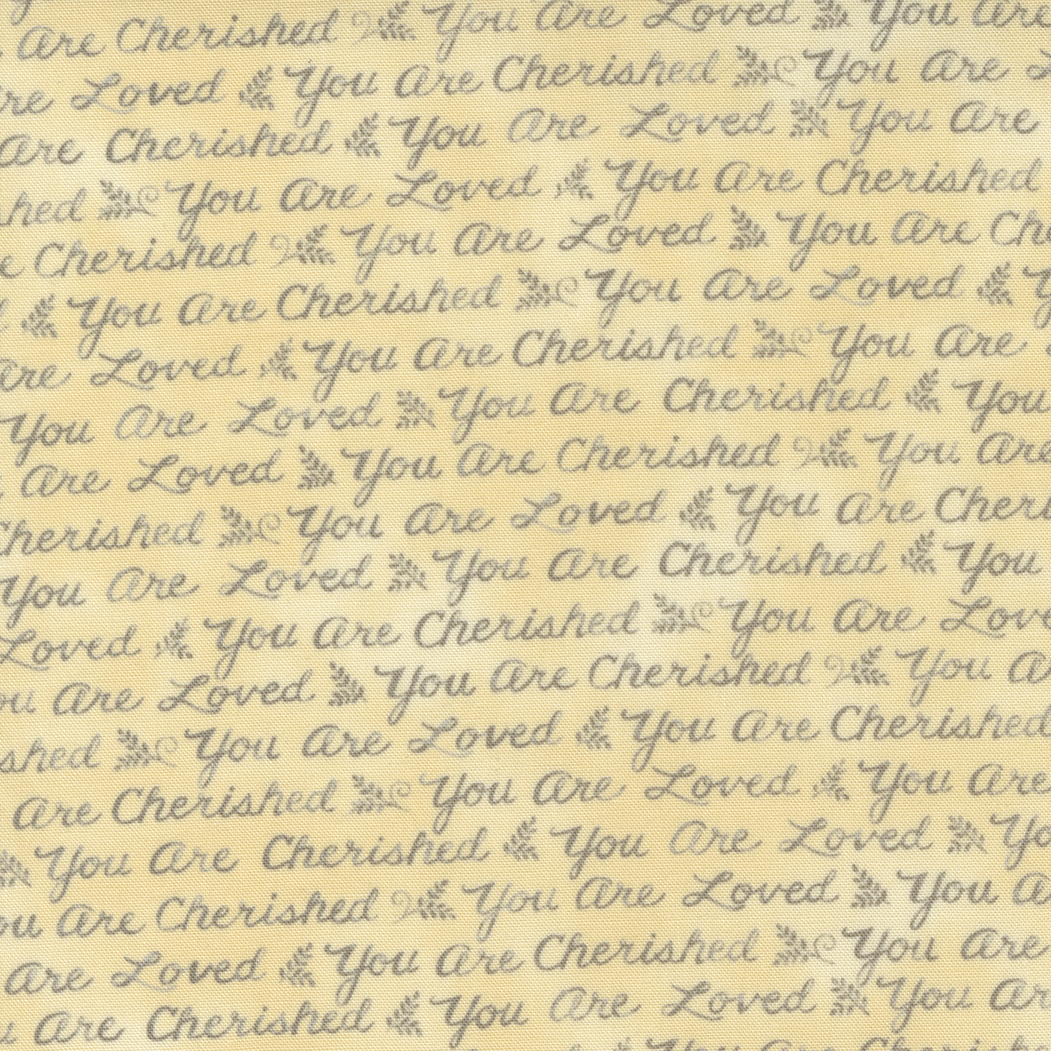 Are Cherished You Are Loved You Are
Are Loved You Are Cherished You Are
Are Cherished You Are Loved You Are
shed You Are Loved You Are Cherished
Cherished You Are Loved You Are Che
You Are Cherished You Are Loved
Are Loved You Are Cherished You Are
You Are Loved You Are Cherished You
Are Loved You Are Cherished You Are
Cherished You Are Loved You Are Cheri
You Are Loved You Are Cherished You
Loved You Are Cherished You Are Love
ou Are Loved You Are Cherished You A
shed You Are Loved You Are Cherished
Are Cherished You Are Loved You Are
You Are Cherished You Are Loved Yo
ou Are Cherished You Are Loved You A
Are Loved You Are Cherished You Are
u Are Cherished You Are Loved You Ar